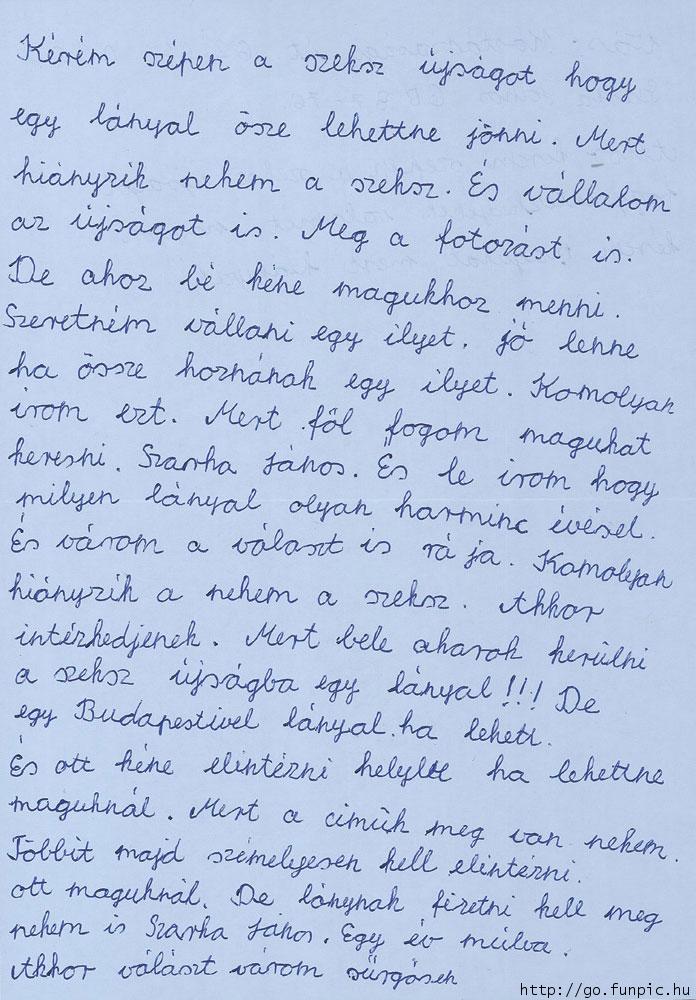 Kérém szépen a szeksz újságot hogy
egy lányal ösze lehettne jönni. Mert
hiányzik nekem a szeksz. És vállalom
az újságot is. Meg a fotozást is.
De ahoz bé kéne magukhoz menni.
Szeretném vállani egy ilyet. jó lenne
ha össze hoznának egy ilyet. Komolyan
irom ezt. Mert föl fogom magukat
keresni. Szarka János. És le irom hogy
milyen lányal olyan harminc évésel.
És várom a választ is rá ja. Komolyan
hiányzik a nekem a szeksz. Akkor
intézkedjenek. Mert bele akarok kerülni
a szeksz újságba egy lányal!!! De
egy Budapestivel lányal. ha lehett.
És ott kéne elintézni ha lehettne
maguknál. Mert a cimük meg van nekem.
Többit majd személyesen kell elintézni.
ott maguknál. De lánynak fizetni kell meg
nekem is Szarka János. Egy év múlva.
Akkor választ várom sürgősen
http://go.funpic.hu